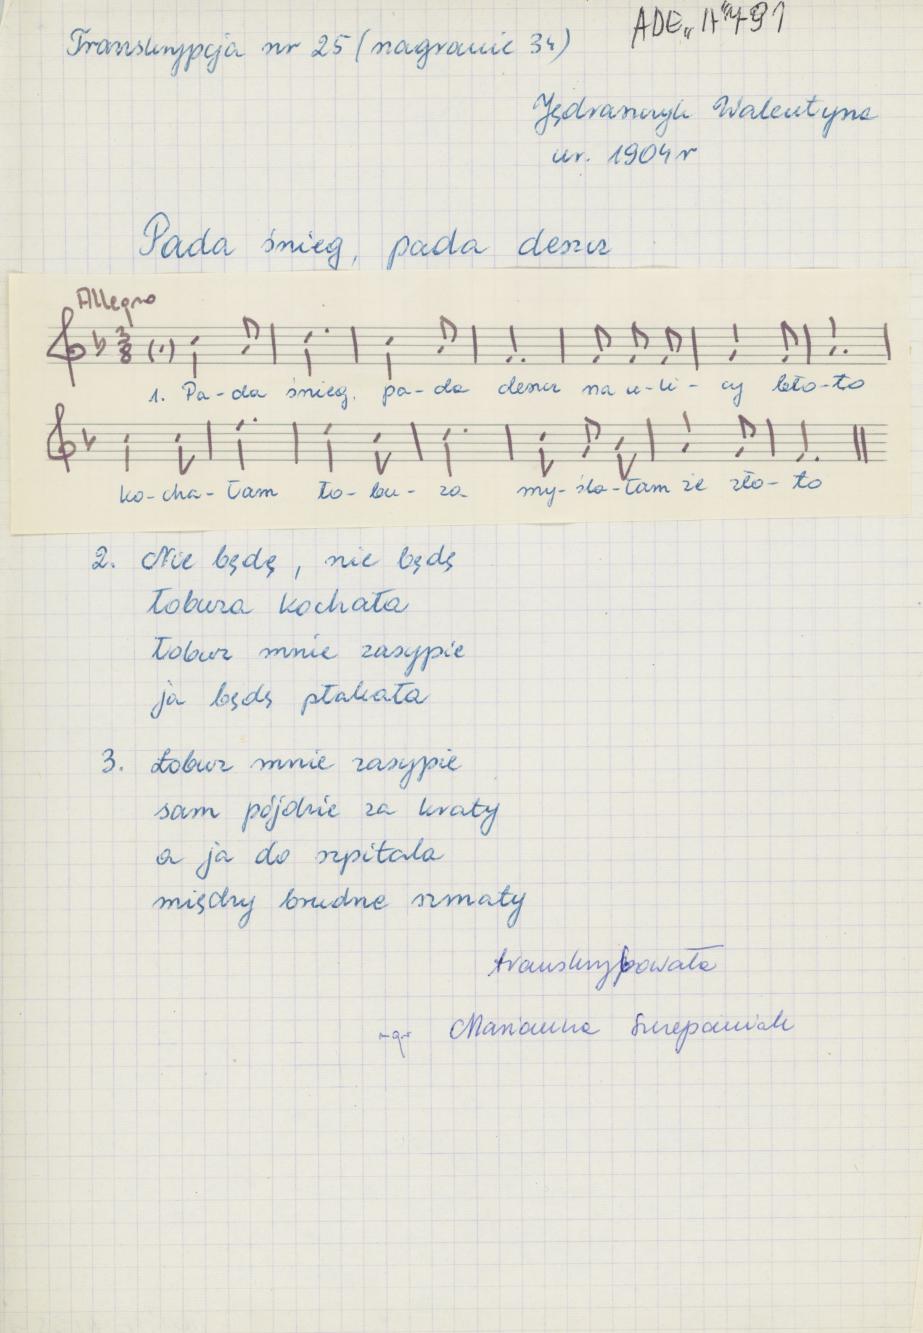 ADE „A" 491
Transkrypcja nr 25 (nagranie 34)
Jędraszczyk Walentyna
ur. 1904 r
Pada śnieg, pada deszcz
Allegro
3/8
1. Pa-da śnieg, pa-da deszcz na u-li-cy bło-to
ko-cha-łam ło-bu-za my-śla-łam że zło-to
2. Nie będę, nie będę
łobuza kochała
łobuz mnie zasypie
ja będę płakała
3. Łobuz mnie zasypie
sam pójdzie za kraty
a ja do szpitala
między brudne szmaty
transkrybowała
Marianna Szczepaniak